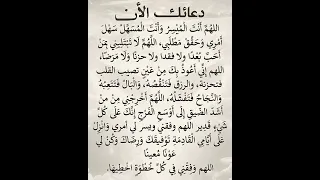 دعائك الأن
اللهم أنت الميسر وأنت المسهل سهل
أمري وحقق مطلبي، اللهم لا تبتليني بمن
أحب بعدا ولا فقدا ولا حزنا ولا مرضا،
اللهم إني أعوذ بك من عين تصيب القلب
فتحزنه، والرزق فتنقصه، والبال فتتعبه
والنجاح فتفشله، اللهم أخرجني من
أشد الضيق إلى أوسع الفرج إنك على كل
شيء قدير اللهم وفقني ويسر لي أمري وانزل
على أيامي القادمة توفيقك ورضاك وكن لي
عونا معينا
اللهم وفقني في كل خطوة اخطيها.